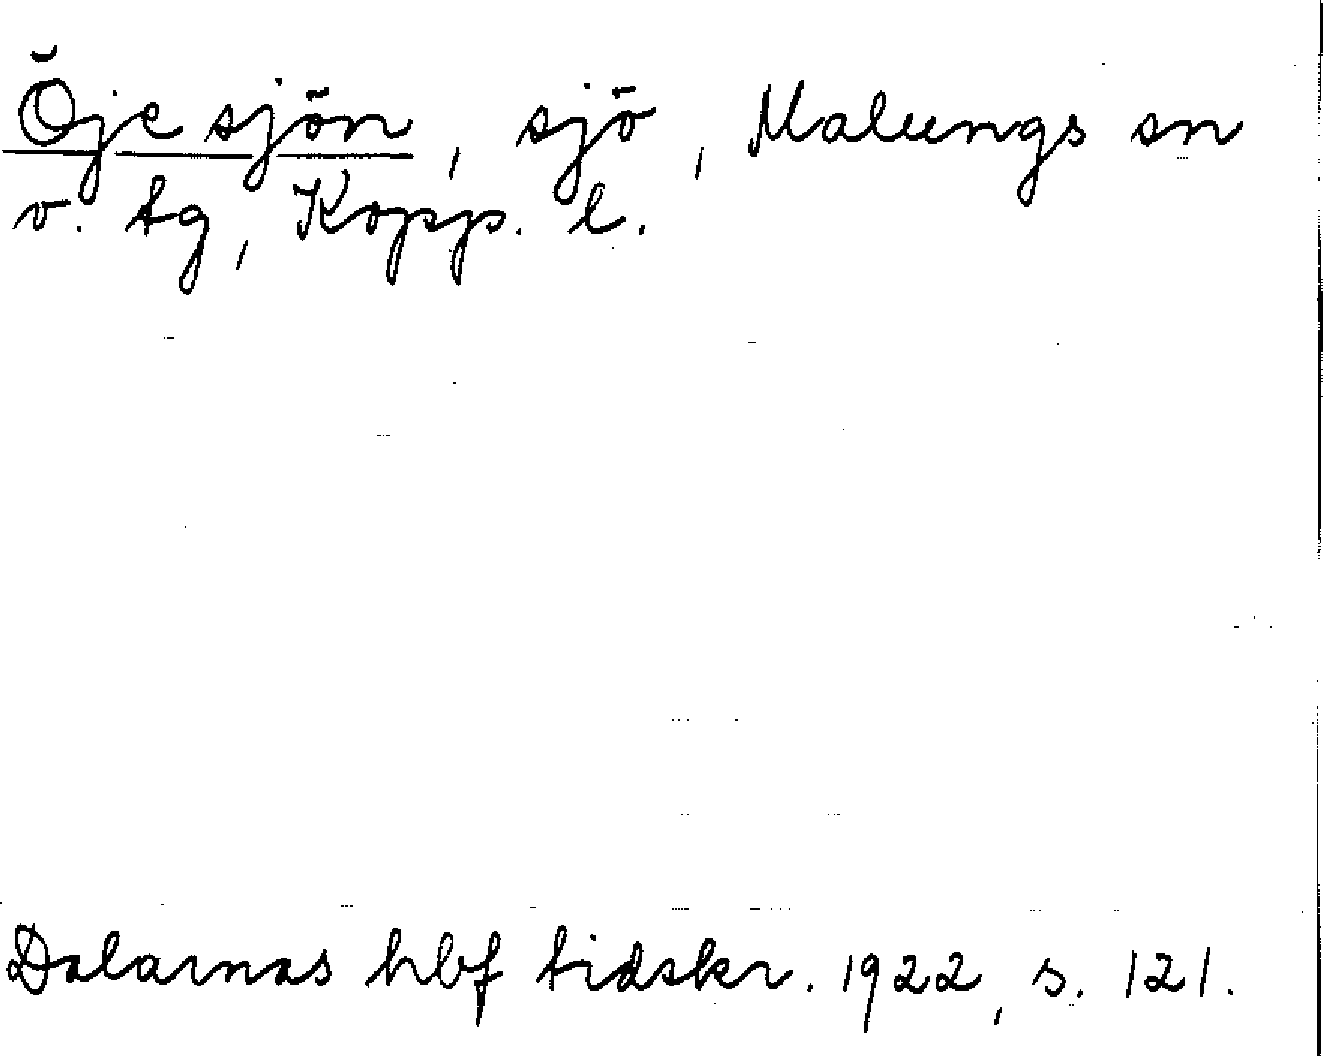 Öjesjön, sjö, Malungs sn
v. tg, Kopp. l.
Dalarnas hbf tidskr. 1922, s. 121.